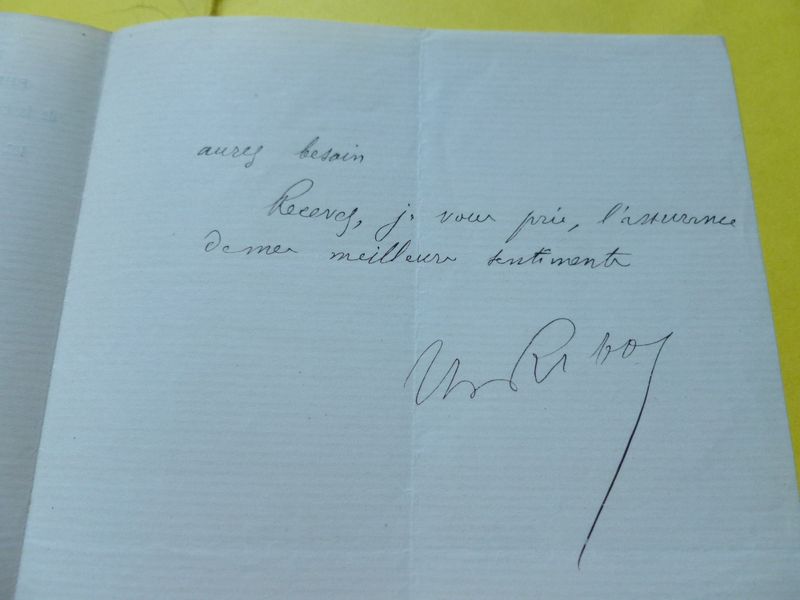 aurez besoin
Recevez, je vous prie, l'assurance
de mes meilleurs sentiments
Ribot